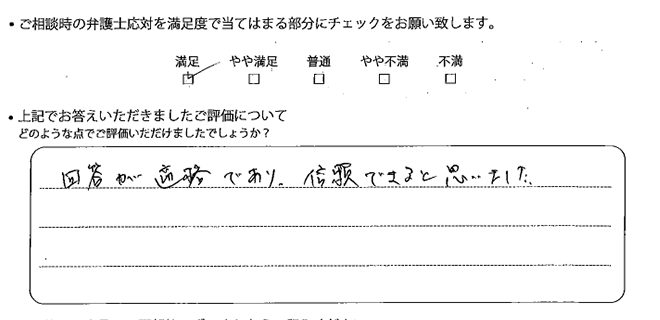 • ご相談時の弁護士応対を満足度で当てはまる部分にチェックをお願い致します。
満足 やや満足 普通 やや不満 不満
• 上記でお答えいただきましたご評価について
どのような点でご評価いただけましたでしょうか？
回答が適格であり、信頼できると思いました。